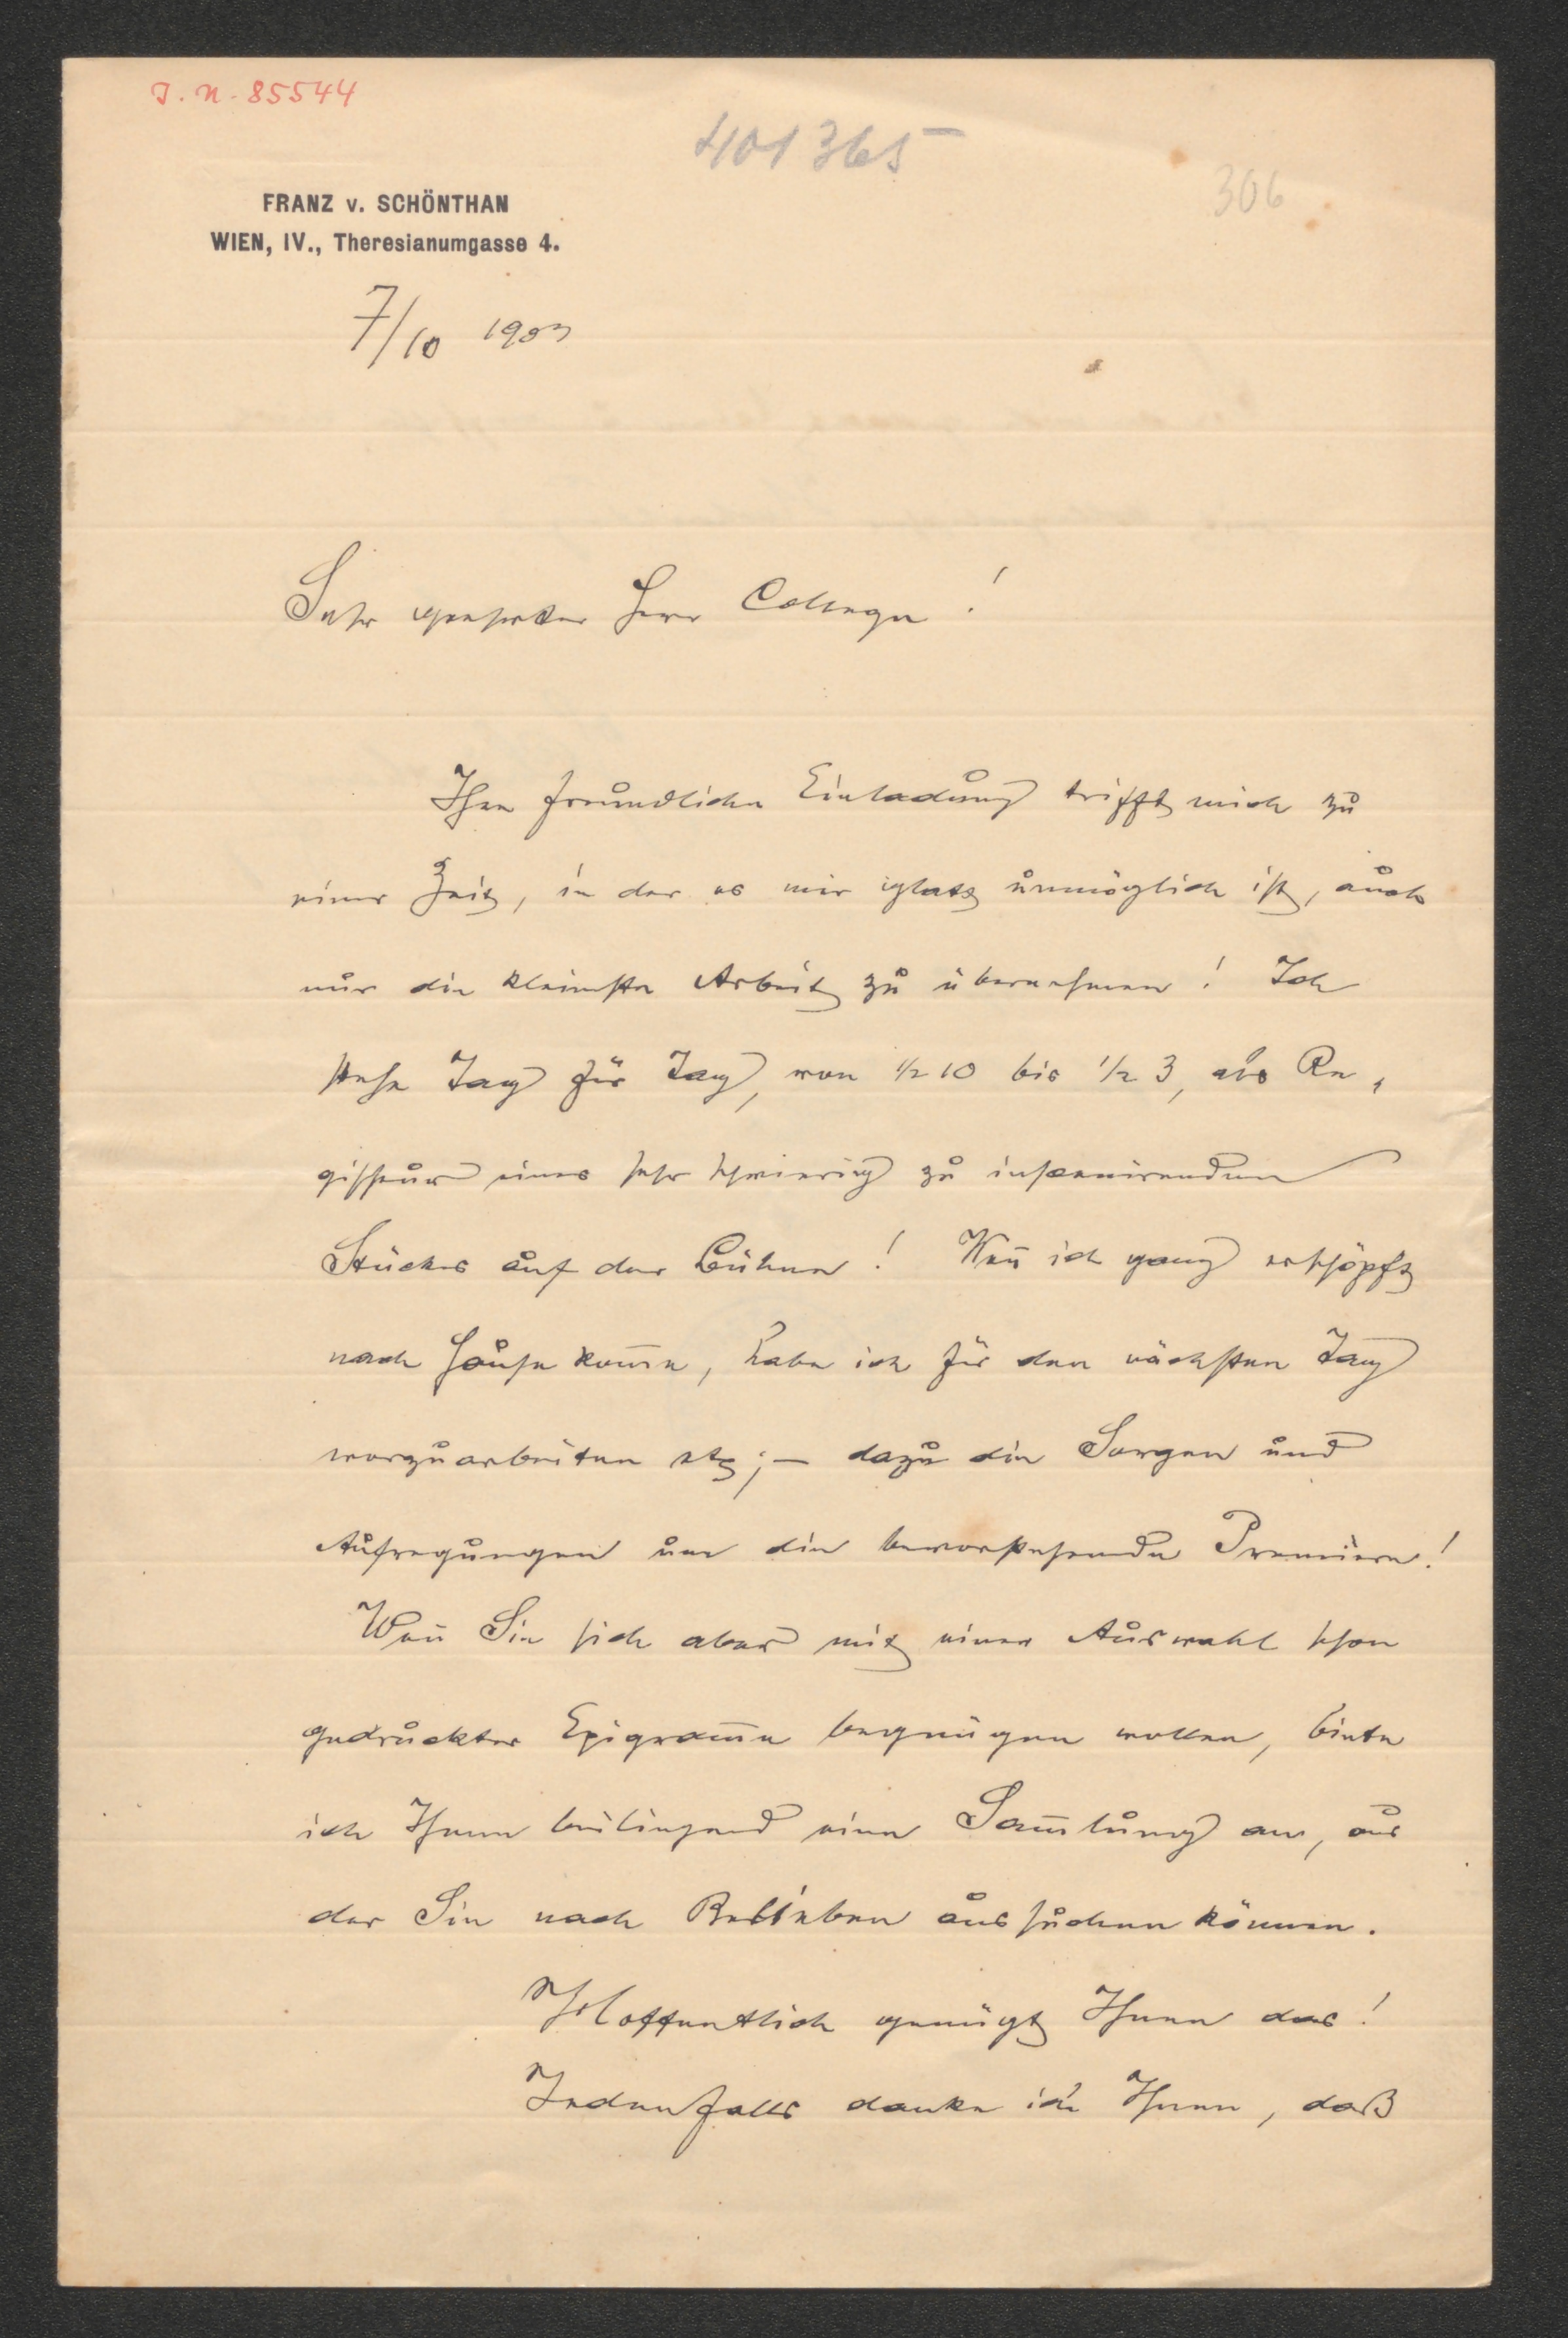 J. N. 85544
401365
306
FRANZ v. SCHÖNTHAN
WIEN, IV., Theresianumgasse 4.
7/10 1903
Sehr geehrter Herr College!
Ihre freundliche Einladung trifft mich zu
einer Zeit, in der es mir glatt unmöglich ist, auch
nur die kleinste Arbeit zu übernehmen! Ich
stehe Tag für Tag, von 1/2 10 bis 1/2 3, als Re-
gisseur eines sehr schwierig zu inscenirenden
Stückes auf der Bühne! Weñ ich ganz erschöpft
nach Hause kom̅e, habe ich für den nächsten Tag
vorzuarbeiten etz; – dazu die Sorgen und
Aufregungen um die bevorstehende Premiere!
Weñ Sie sich aber mit einer Auswahl schon
gedruckter Epigram̅e begnügen wollen, biete
ich Ihnen beiliegend eine Sam̅lung an, aus
der Sie nach Belieben aussuchen können.
Hoffentlich genügt Ihnen das!
Jedenfalls danke ich Ihnen, daß